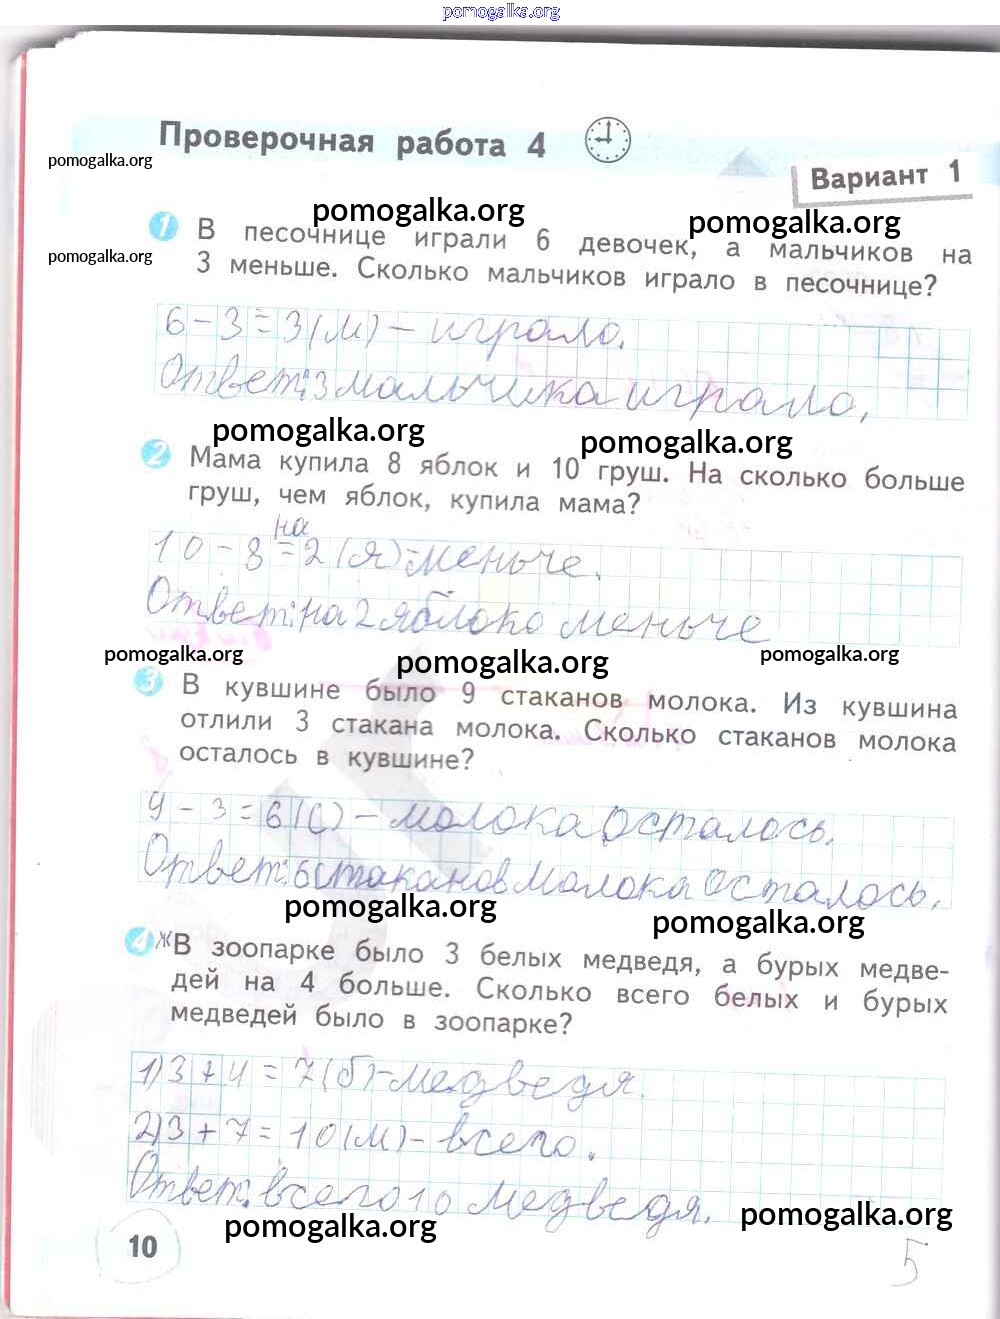 pomogalka.org
Проверочная работа 4
pomogalka.org
Вариант 1
pomogalka.org
pomogalka.org
1 В песочнице играли 6 девочек, а мальчиков на
pomogalka.org
3 меньше. Сколько мальчиков играло в песочнице?
6 - 3 = 3 (м) - играло.
Ответ: 3 мальчика играло,
pomogalka.org
pomogalka.org
2 Мама купила 8 яблок и 10 груш. На сколько больше
груш, чем яблок, купила мама?
на
10 - 8 = 2 (я) - меньче.
Ответ: на 2 яблоко меньче
pomogalka.org
pomogalka.org
pomogalka.org
3 В кувшине было 9 стаканов молока. Из кувшина
отлили 3 стакана молока. Сколько стаканов молока
осталось в кувшине?
9 - 3 = 6 (с) - молока осталось.
Ответ: 6 стаканов молока осталось.
pomogalka.org
pomogalka.org
4 ж В зоопарке было 3 белых медведя, а бурых медве-
дей на 4 больше. Сколько всего белых и бурых
медведей было в зоопарке?
1) 3 + 4 = 7 (б) - медведя.
2) 3 + 7 = 10 (м) - всего.
Ответ: всего 10 медведя.
pomogalka.org
pomogalka.org
10
5